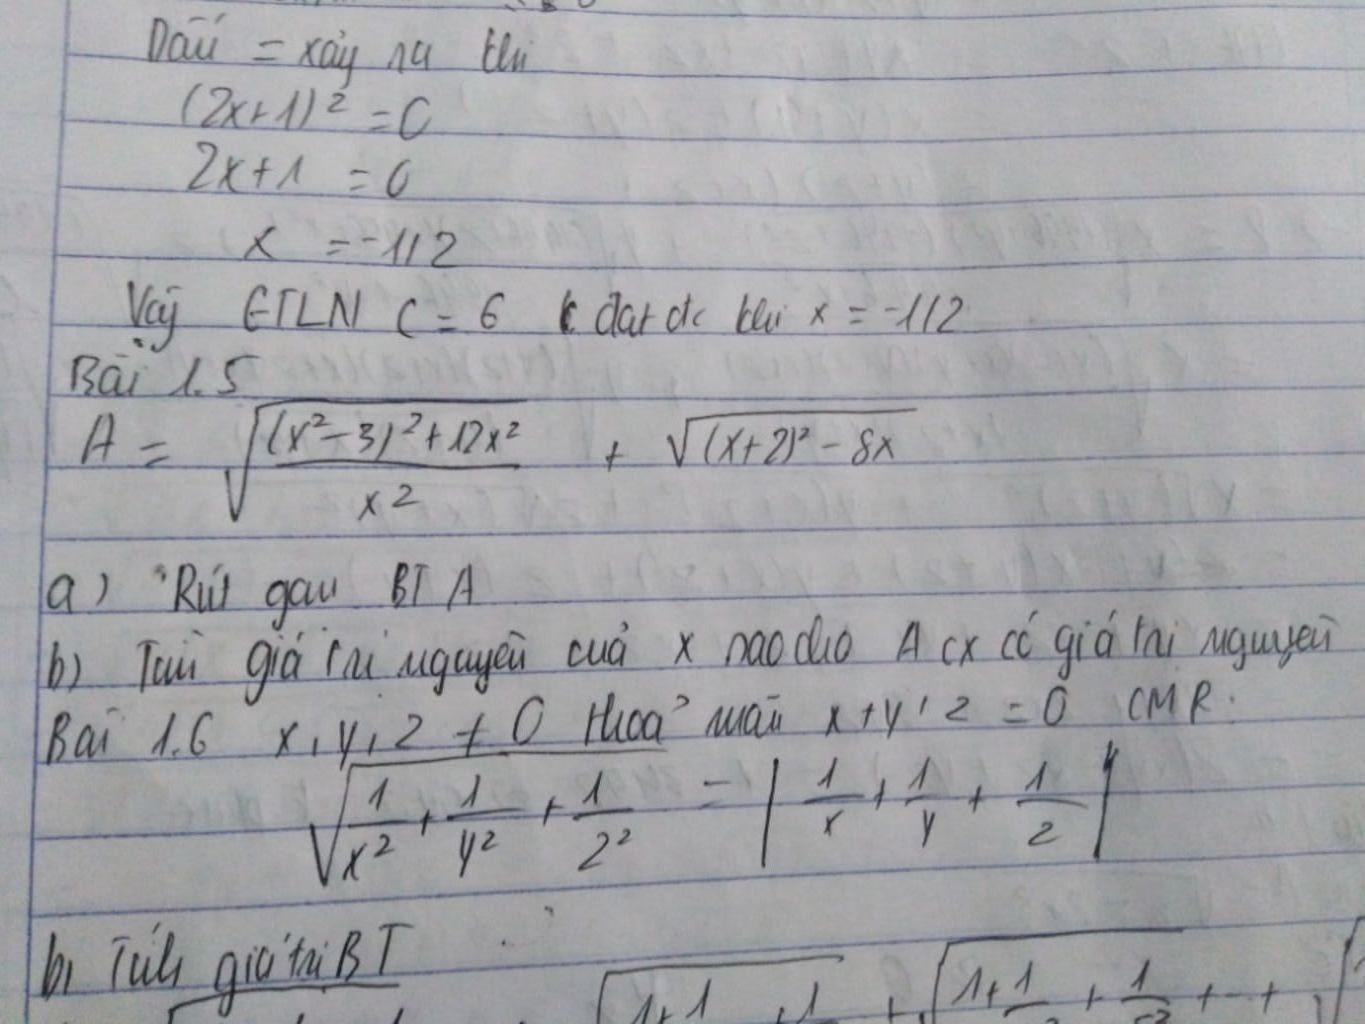 Dấu = xảy ra khi
(2x+1)² = 0
2x+1 = 0
x = -1/2
Vậy GTLN C = 6 đạt đc khi x = -1/2
Bài 1.5
A = √(((x²-3)²+12x²)/x²) + √((x+2)²-8x)
a) Rút gọn BT A
b) Tìm giá trị nguyên của x sao cho A có giá trị nguyên
Bài 1.6 x, y, z ≠ 0 thoả mãn x+y+z = 0 CMR:
√(1/x² + 1/y² + 1/z²) = |1/x + 1/y + 1/z|
b, Tính giá trị BT